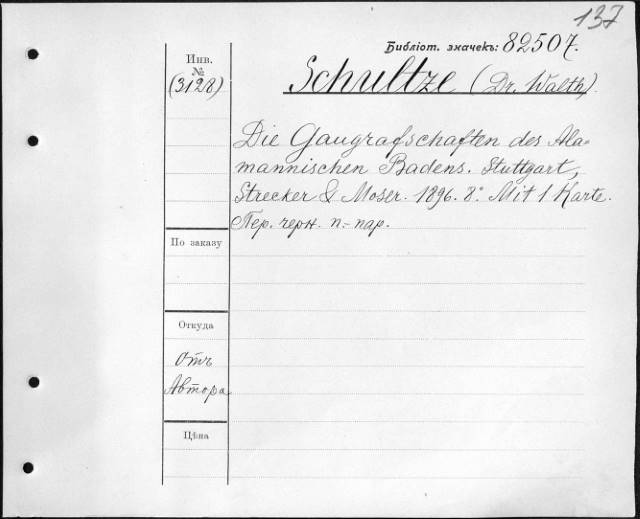 137
Библіот. значекъ: 82507.
Инв.
№
(3128)
Schultze (Dr. Walth.)
Die Gaugrafschaften des Ala-
mannischen Badens. Stuttgart,
Strecker & Moser. 1896. 8° Mit 1 Karte.
Пер. черн. п.-пар.
По заказу
Откуда
Отъ
Автора
Цѣна